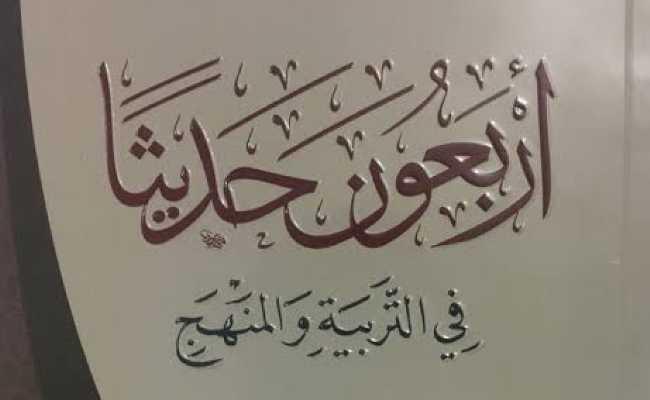 أربعون حديثا
في التربية والمنهج